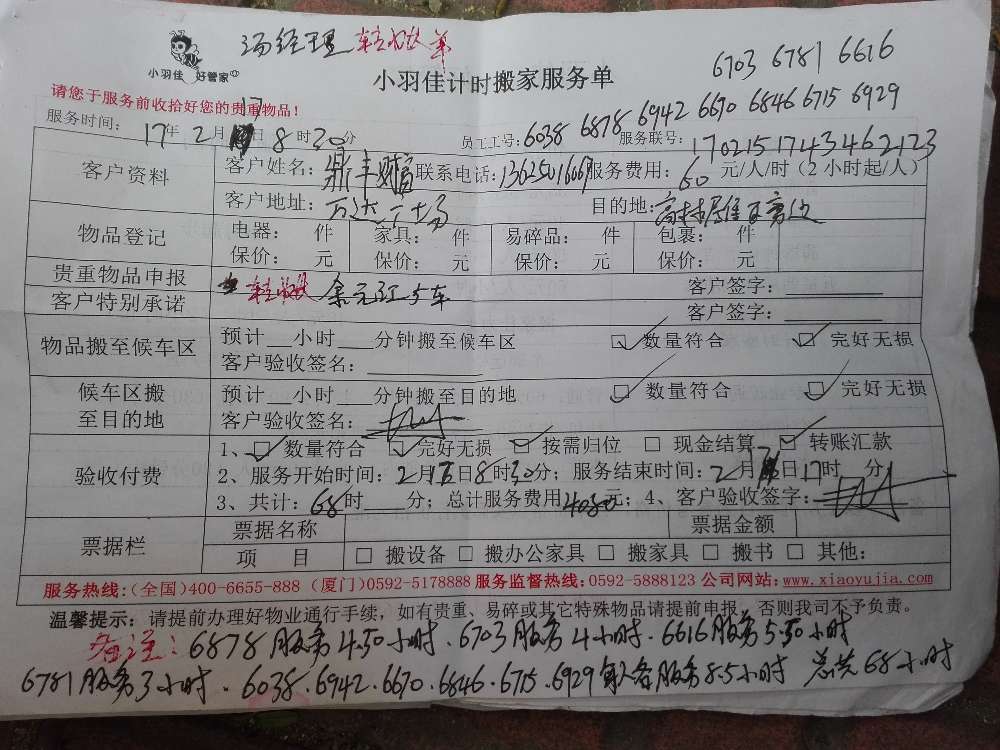 汤经理 转账单
小羽佳 好管家
小羽佳计时搬家服务单
6703 6781 6616
请您于服务前收拾好您的贵重物品!
服务时间: 17年 2月 17日 8时30分 员工工号: 6038 6878 6942 6670 6846 6715 6929 服务联号: 170215174346 2123
客户资料 客户姓名: 鼎丰财富 联系电话: 服务费用: 60 元/人/时(2小时起/人)
客户地址: 万达广场 目的地:
物品登记 电器: 件 家具: 件 易碎品: 件 包裹: 件
保价: 元 保价: 元 保价: 元 保价: 元
贵重物品申报 客户签字:
客户特别承诺 客户签字:
物品搬至候车区 预计__小时___分钟搬至候车区 ☑数量符合 ☑完好无损
客户验收签名:
候车区搬至目的地 预计__小时___分钟搬至目的地 ☑数量符合 ☑完好无损
客户验收签名:
验收付费 1、☑数量符合 ☑完好无损 ☑按需归位 □现金结算 ☑转账汇款
2、服务开始时间: 2月 日8时30分; 服务结束时间: 2月17日17时 分;
3、共计: 68时___分; 总计服务费用4080元; 4、客户验收签字:
票据栏 票据名称 票据金额
项 目 □搬设备 □搬办公家具 □搬家具 □搬书 □其他:
服务热线:(全国)400-6655-888 (厦门)0592-5178888 服务监督热线:0592-5888123 公司网站:www.xiaoyujia.com
温馨提示: 请提前办理好物业通行手续,如有贵重、易碎或其它特殊物品请提前申报,否则我司不予负责。
备注: 6878服务4.50小时. 6703服务4小时. 6616服务5.50小时
6781服务3小时. 6038.6942.6670.6846.6715.6929每人各服务8.5小时 总共68小时